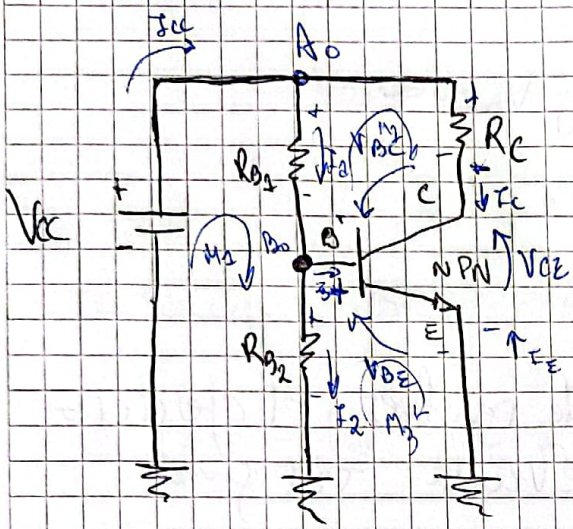 Icc
A₀
+
+
+
RB1
I1
VBC
M2
RC
-
-
+
C
Ic
VCC
+
-
M1
B₀
B
+
NPN
VCE
E
-
-
IE
+
RB2
-
I2
VBE
M3